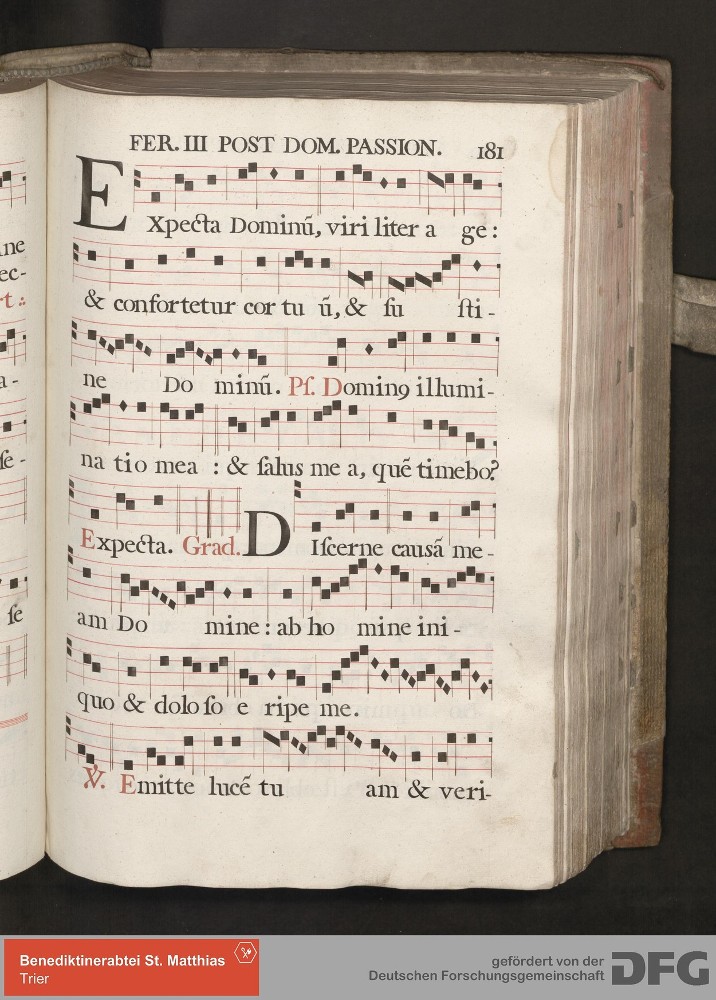 ine
ec-
t :
a-
ſe-
ſe
FER. III POST DOM. PASSION. 181
EXpecta Dominū, viri liter a ge:
& confortetur cor tu ū, & ſu ſti-
ne Do minū. Pſ. Dominꝯ illumi-
na tio mea : & ſalus me a, quē timebo?
Expecta. Grad. DIſcerne causā me-
am Do mine : ab ho mine ini-
quo & doloſo e ripe me.
℣. Emitte lucē tu am & veri-
Benediktinerabtei St. Matthias
Trier
gefördert von der
Deutschen Forschungsgemeinschaft
DFG